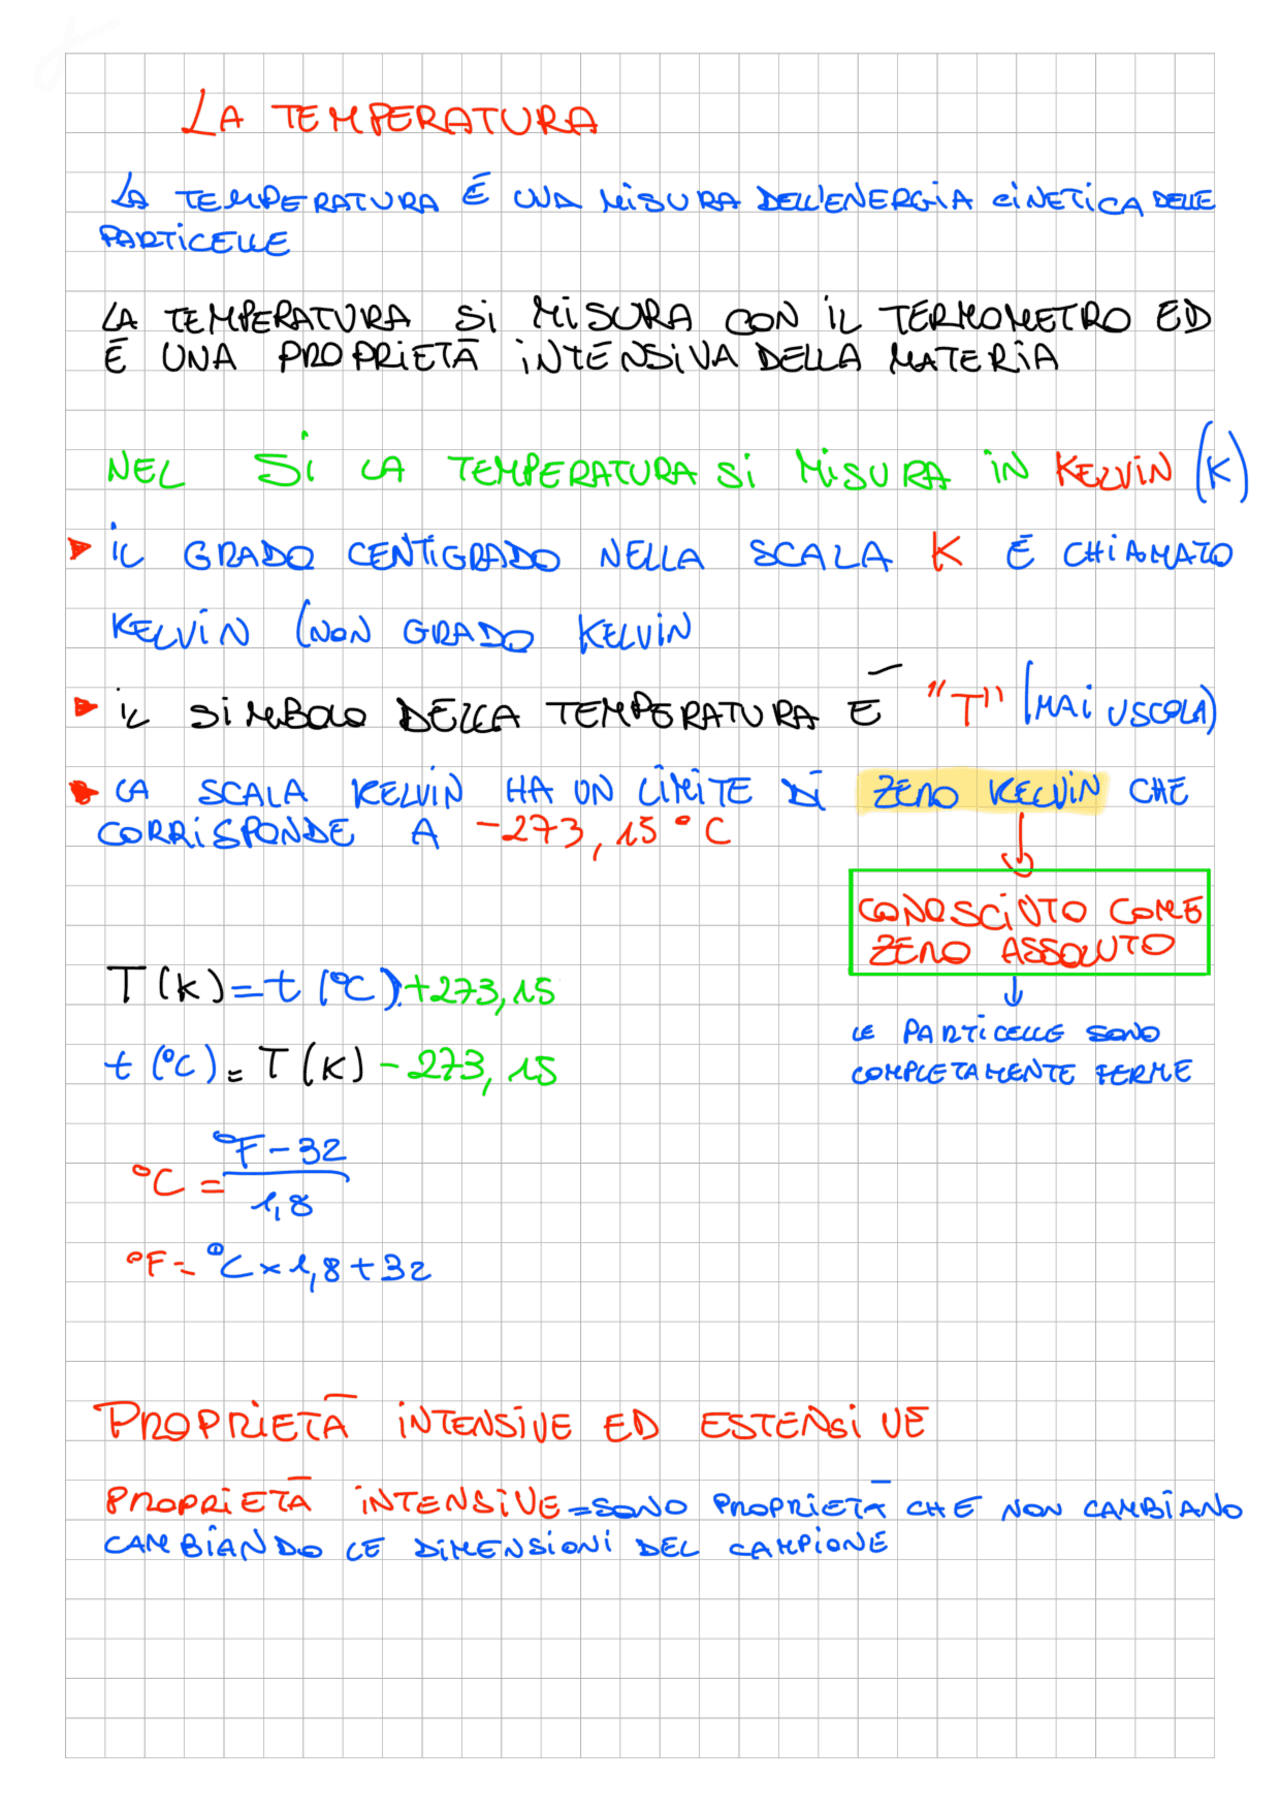 LA TEMPERATURA
LA TEMPERATURA È UNA MISURA DELL'ENERGIA CINETICA DELLE
PARTICELLE
LA TEMPERATURA SI MISURA CON IL TERMOMETRO ED
È UNA PROPRIETÀ INTENSIVA DELLA MATERIA
NEL SI LA TEMPERATURA SI MISURA IN KELVIN (K)
IL GRADO CENTIGRADO NELLA SCALA K È CHIAMATO
KELVIN (NON GRADO KELVIN
IL SIMBOLO DELLA TEMPERATURA È "T" (MAIUSCOLA)
LA SCALA KELVIN HA UN LIMITE DI ZERO KELVIN CHE
CORRISPONDE A -273,15°C
CONOSCIUTO COME
ZERO ASSOLUTO
LE PARTICELLE SONO
COMPLETAMENTE FERME
T(K)=t(°C)+273,15
t(°C)=T(K)-273,15
°C=°F-32
1,8
°F=°C×1,8+32
PROPRIETÀ INTENSIVE ED ESTENSIVE
PROPRIETÀ INTENSIVE=SONO PROPRIETÀ CHE NON CAMBIANO
CAMBIANDO LE DIMENSIONI DEL CAMPIONE